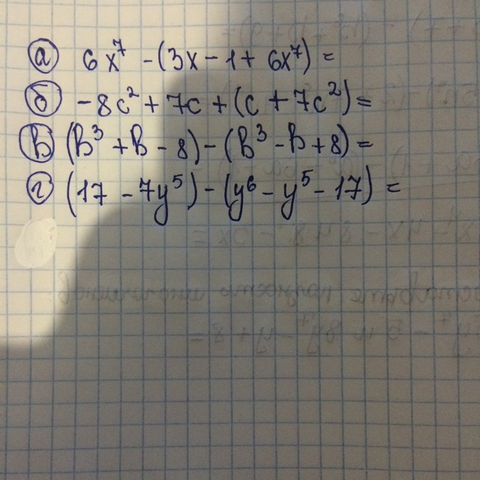 а) 6x⁷ - (3x - 1 + 6x⁷) =
б) -8c² + 7c + (c + 7c²) =
в) (b³ + b - 8) - (b³ - b + 8) =
г) (17 - 7y⁵) - (y⁶ - y⁵ - 17) =